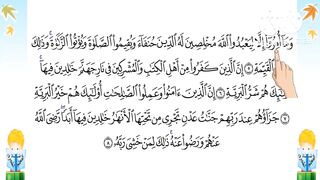 وَمَآ أُمِرُوٓا۟ إِلَّا لِيَعْبُدُوا۟ ٱللَّهَ مُخْلِصِينَ لَهُ ٱلدِّينَ حُنَفَآءَ وَيُقِيمُوا۟ ٱلصَّلَوٰةَ وَيُؤْتُوا۟ ٱلزَّكَوٰةَ ۚ وَذَٰلِكَ
ٱلْقَيِّمَةِ ۝ إِنَّ ٱلَّذِينَ كَفَرُوا۟ مِنْ أَهْلِ ٱلْكِتَٰبِ وَٱلْمُشْرِكِينَ فِى نَارِ جَهَنَّمَ خَٰلِدِينَ فِيهَآ ۚ
هُمْ شَرُّ ٱلْبَرِيَّةِ ۝ إِنَّ ٱلَّذِينَ ءَامَنُوا۟ وَعَمِلُوا۟ ٱلصَّٰلِحَٰتِ أُو۟لَٰٓئِكَ هُمْ خَيْرُ ٱلْبَرِيَّةِ
۝ جَزَآؤُهُمْ عِندَ رَبِّهِمْ جَنَّٰتُ عَدْنٍ تَجْرِى مِن تَحْتِهَا ٱلْأَنْهَٰرُ خَٰلِدِينَ فِيهَآ أَبَدًا ۖ رَّضِىَ ٱللَّهُ
عَنْهُمْ وَرَضُوا۟ عَنْهُ ۚ ذَٰلِكَ لِمَنْ خَشِىَ رَبَّهُۥ ۝٨